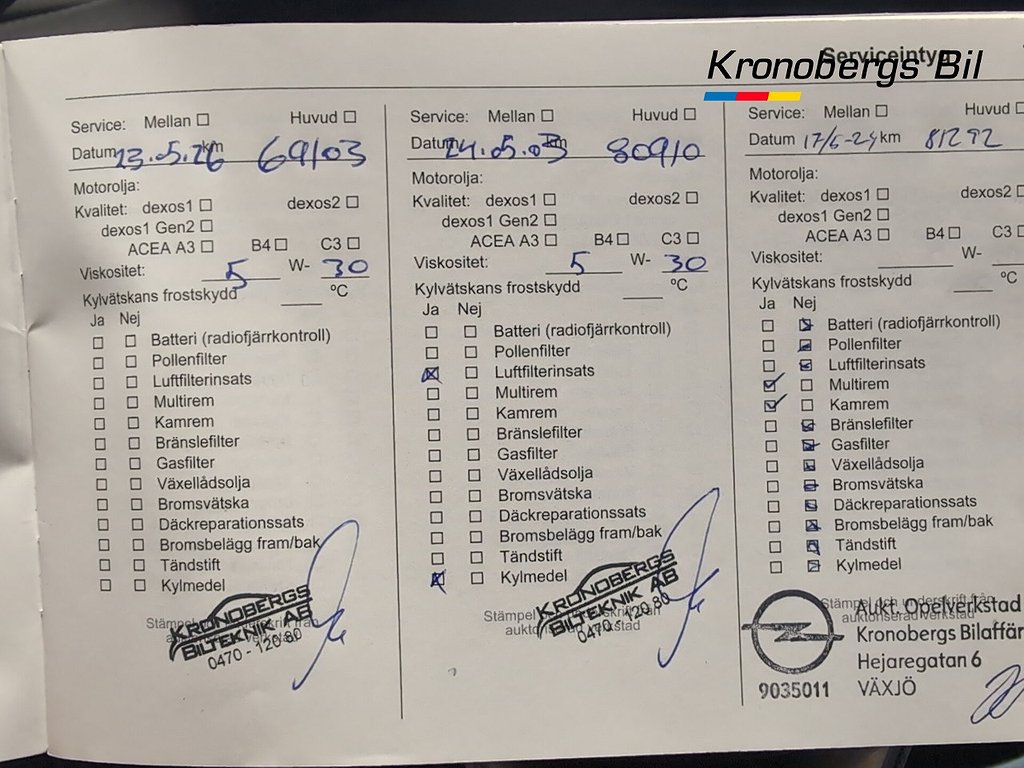 Kronobergs Bil
Serviceintyg
Service: Mellan Huvud
Datum km 69103
Motorolja:
Kvalitet: dexos1 dexos2
dexos1 Gen2
ACEA A3 B4 C3
Viskositet: 5 W- 30
Kylvätskans frostskydd ºC
Ja Nej
Batteri (radiofjärrkontroll)
Pollenfilter
Luftfilterinsats
Multirem
Kamrem
Bränslefilter
Gasfilter
Växellådsolja
Bromsvätska
Däckreparationssats
Bromsbelägg fram/bak
Tändstift
Kylmedel
KRONOBERGS
BILTEKNIK AB
0470 - 120 80
Service: Mellan Huvud
Datum 80910
Motorolja:
Kvalitet: dexos1 dexos2
dexos1 Gen2
ACEA A3 B4 C3
Viskositet: 5 W- 30
Kylvätskans frostskydd ºC
Ja Nej
Batteri (radiofjärrkontroll)
Pollenfilter
Luftfilterinsats
Multirem
Kamrem
Bränslefilter
Gasfilter
Växellådsolja
Bromsvätska
Däckreparationssats
Bromsbelägg fram/bak
Tändstift
Kylmedel
KRONOBERGS
BILTEKNIK AB
0470 - 120 80
Service: Mellan Huvud
Datum 17/6-24 km 81292
Motorolja:
Kvalitet: dexos1 dexos2
dexos1 Gen2
ACEA A3 B4 C3
Viskositet: W-
Kylvätskans frostskydd ºC
Ja Nej
Batteri (radiofjärrkontroll)
Pollenfilter
Luftfilterinsats
Multirem
Kamrem
Bränslefilter
Gasfilter
Växellådsolja
Bromsvätska
Däckreparationssats
Bromsbelägg fram/bak
Tändstift
Kylmedel
Stämpel och underskrift från
auktoriserad verkstad
Aukt. Opelverkstad
Kronobergs Bilaffär
Hejaregatan 6
9035011 VÄXJÖ